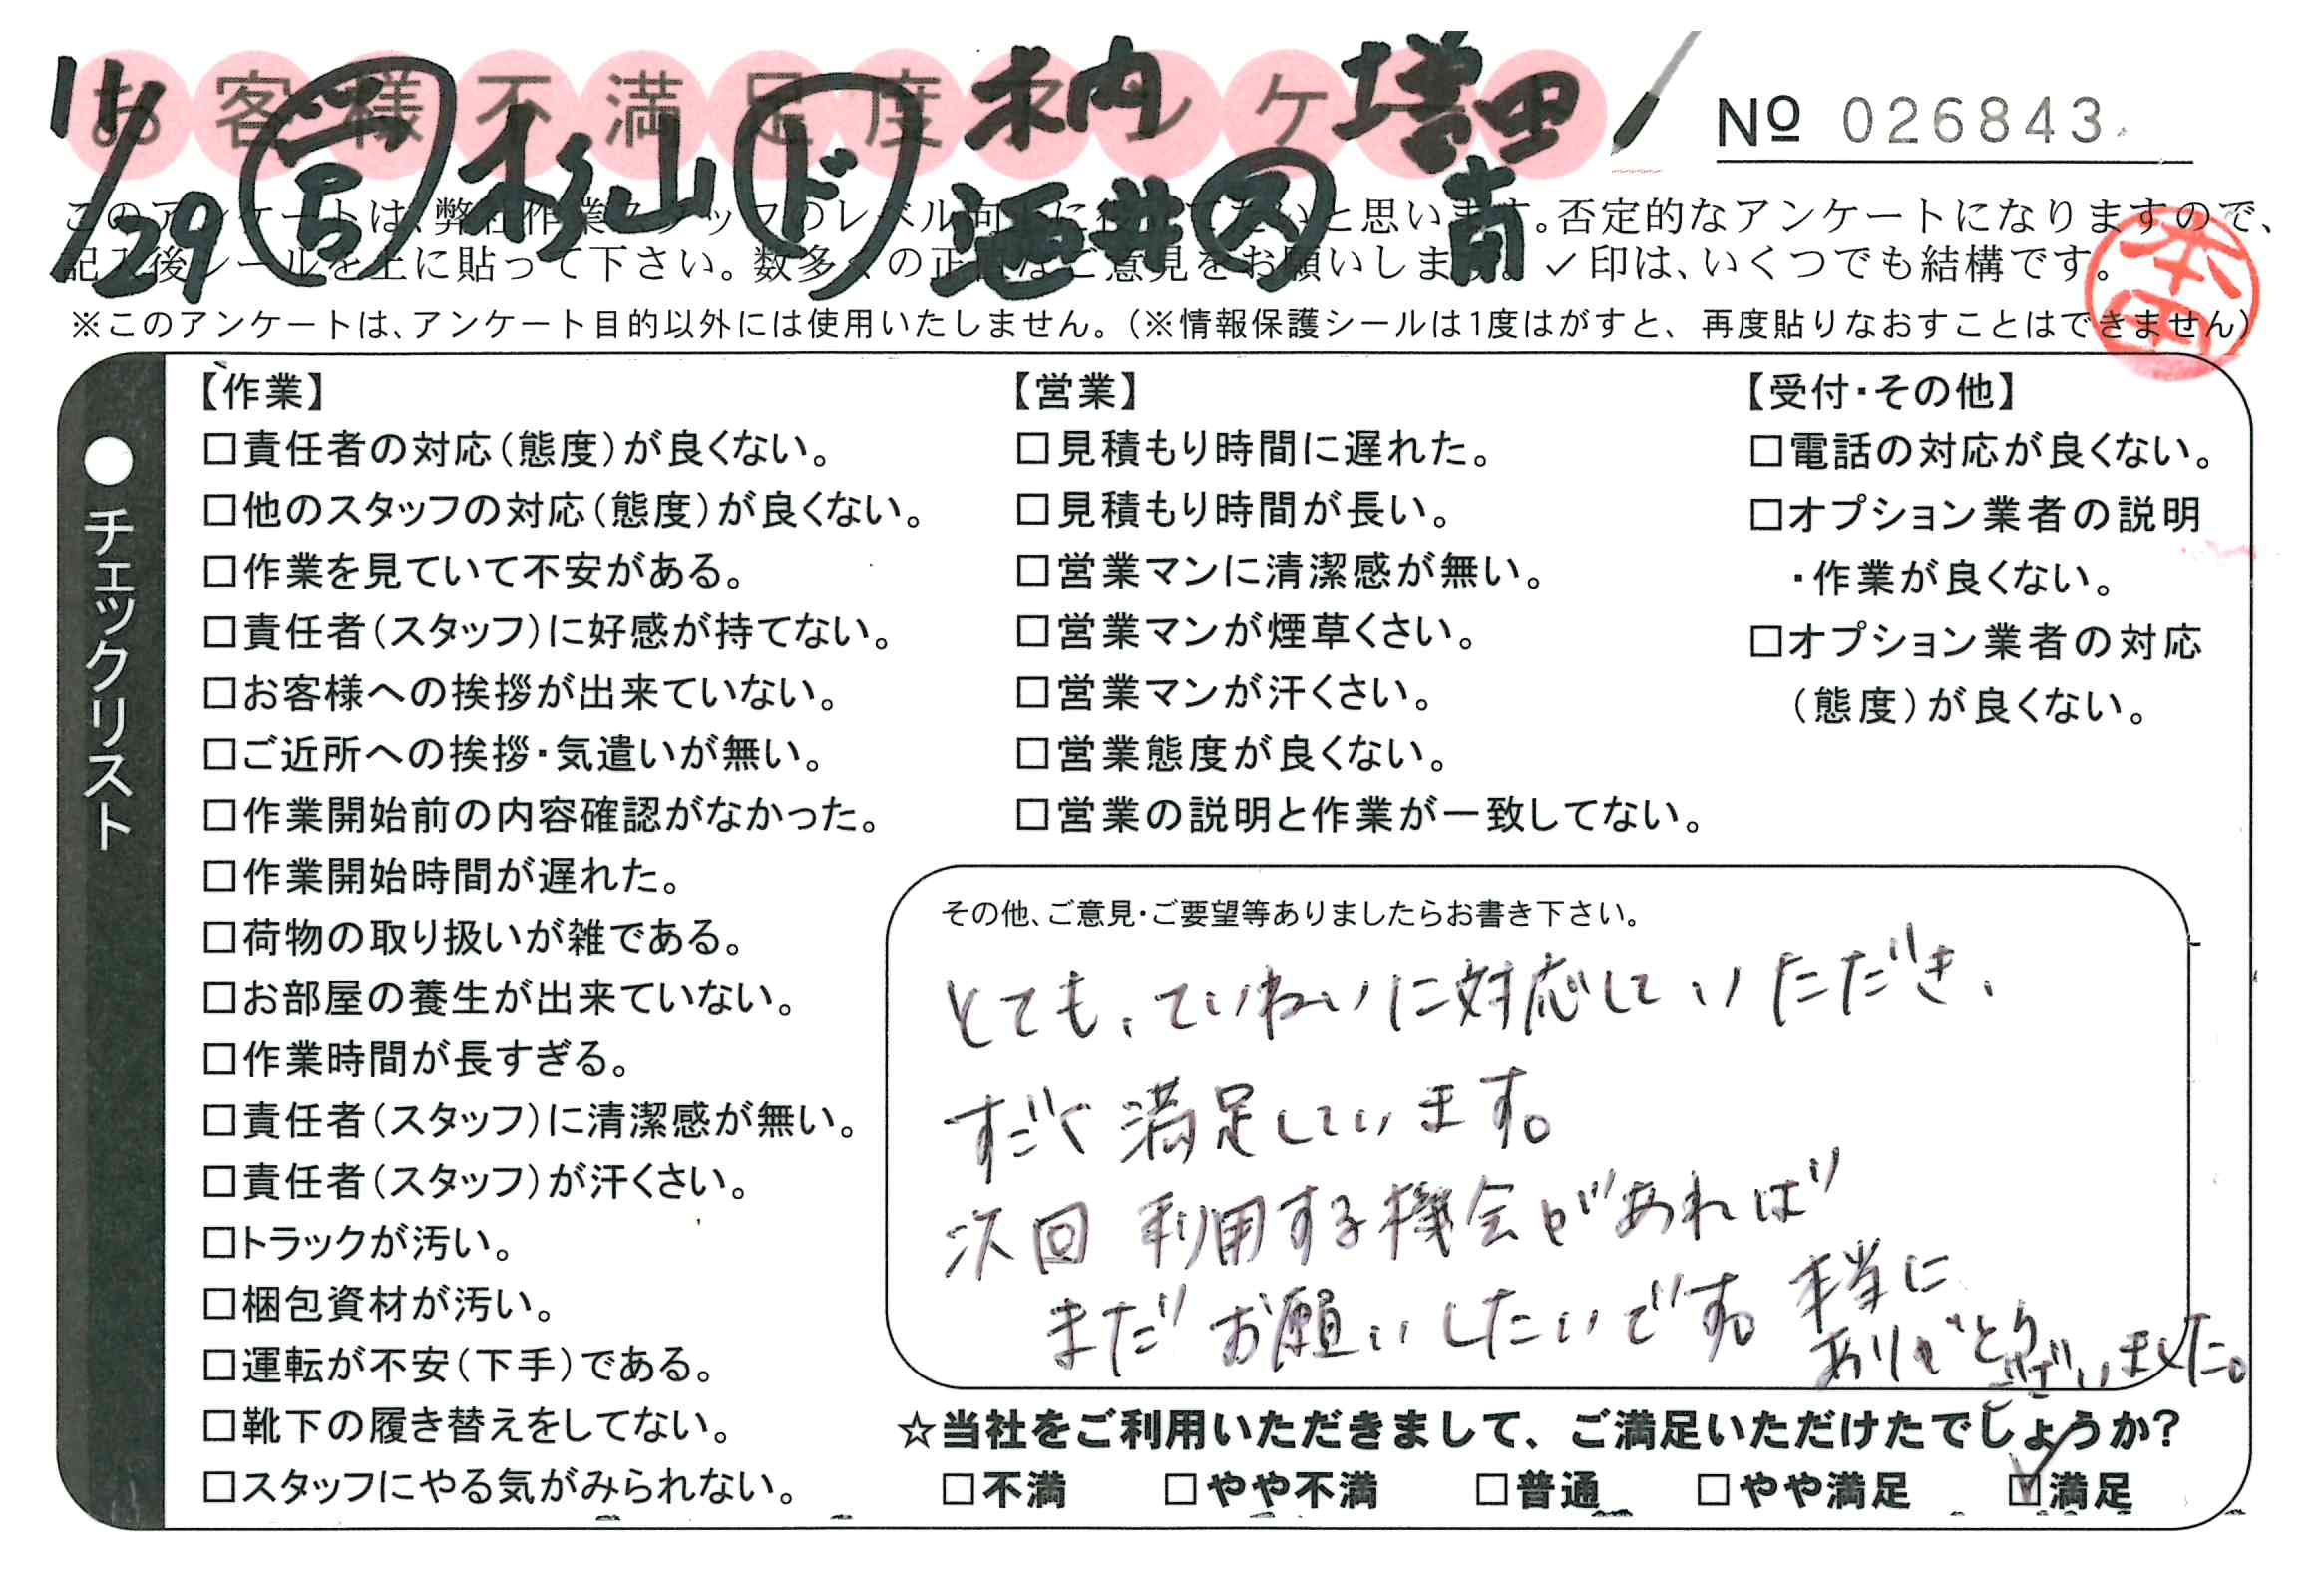 お客様不満足度アンケート
No 026843
11/29 杉山 ド 木内 増田
酒井 ス 南
このアンケートは、弊社作業スタッフのレベル向上に役立てたいと思います。否定的なアンケートになりますので、
記入後シールを上に貼って下さい。数多くの正直なご意見をお願いします。✓印は、いくつでも結構です。
本田
※このアンケートは、アンケート目的以外には使用いたしません。(※情報保護シールは1度はがすと、再度貼りなおすことはできません)
●チェックリスト
【作業】
□責任者の対応(態度)が良くない。
□他のスタッフの対応(態度)が良くない。
□作業を見ていて不安がある。
□責任者(スタッフ)に好感が持てない。
□お客様への挨拶が出来ていない。
□ご近所への挨拶・気遣いが無い。
□作業開始前の内容確認がなかった。
□作業開始時間が遅れた。
□荷物の取り扱いが雑である。
□お部屋の養生が出来ていない。
□作業時間が長すぎる。
□責任者(スタッフ)に清潔感が無い。
□責任者(スタッフ)が汗くさい。
□トラックが汚い。
□梱包資材が汚い。
□運転が不安(下手)である。
□靴下の履き替えをしてない。
□スタッフにやる気がみられない。
【営業】
□見積もり時間に遅れた。
□見積もり時間が長い。
□営業マンに清潔感が無い。
□営業マンが煙草くさい。
□営業マンが汗くさい。
□営業態度が良くない。
□営業の説明と作業が一致してない。
【受付・その他】
□電話の対応が良くない。
□オプション業者の説明
・作業が良くない。
□オプション業者の対応
(態度)が良くない。
その他、ご意見・ご要望等ありましたらお書き下さい。
とても、ていねいに対応していただき、
すごく満足しています。
次回利用する機会があれば
まだお願いしたいです。本当に
ありがとうございました。
☆当社をご利用いただきまして、ご満足いただけたでしょうか?
□不満 □やや不満 □普通 □やや満足 ☑満足